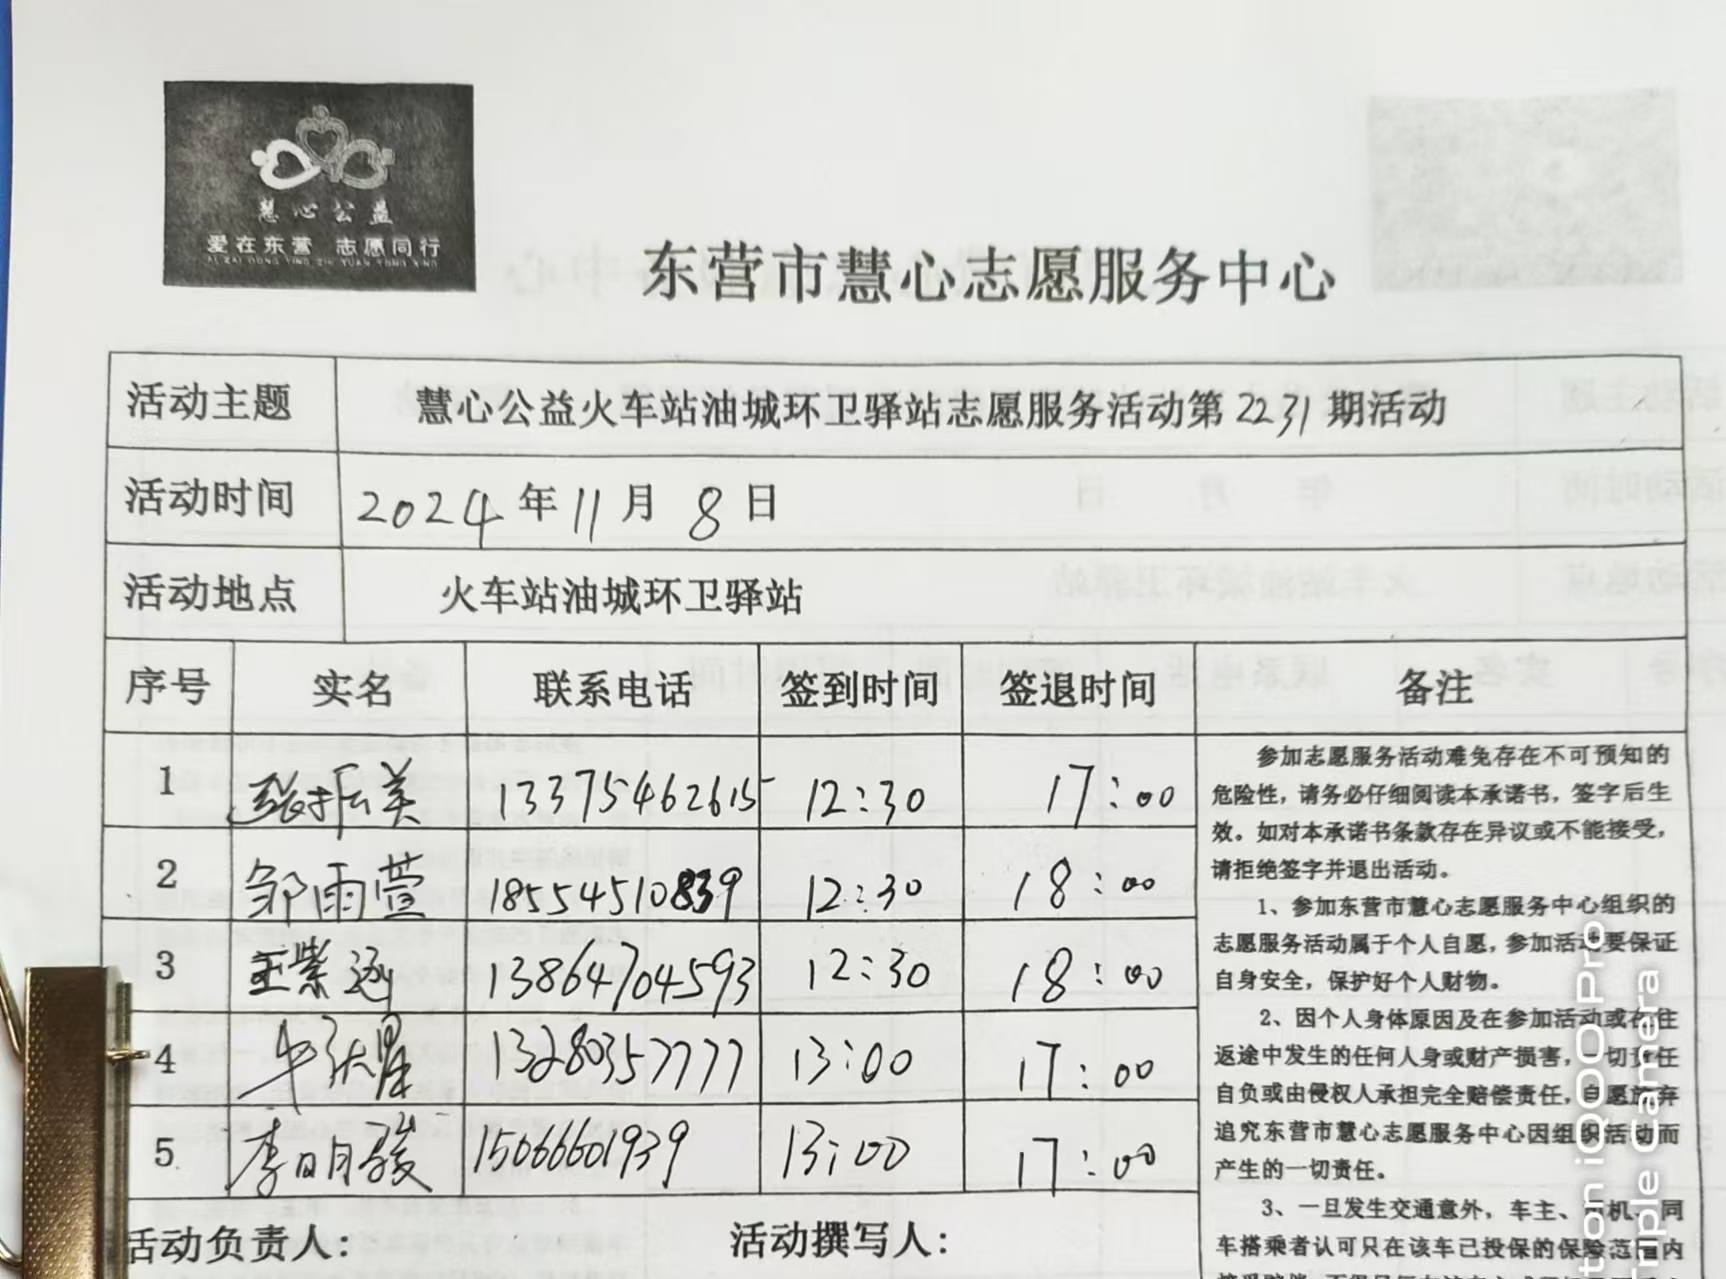 慧心公益
爱在东营 志愿同行
AI ZAI DONG YING ZHI YUAN TONG XING
东营市慧心志愿服务中心
活动主题 慧心公益火车站油城环卫驿站志愿服务活动第2231期活动
活动时间 2024年11月8日
活动地点 火车站油城环卫驿站
序号 实名 联系电话 签到时间 签退时间 备注
1 张振美 13375462615 12:30 17:00
2 邹雨萱 18554510839 12:30 18:00
3 王紫涵 13864704593 12:30 18:00
4 13280357777 13:00 17:00
5 李明骏 15066601939 13:00 17:00
参加志愿服务活动难免存在不可预知的
危险性，请务必仔细阅读本承诺书，签字后生
效。如对本承诺书条款存在异议或不能接受，
请拒绝签字并退出活动。
1、参加东营市慧心志愿服务中心组织的
志愿服务活动属于个人自愿，参加活动要保证
自身安全，保护好个人财物。
2、因个人身体原因及在参加活动或在往
返途中发生的任何人身或财产损害，一切责任
自负或由侵权人承担完全赔偿责任，自愿放弃
追究东营市慧心志愿服务中心因组织活动而
产生的一切责任。
3、一旦发生交通意外，车主、司机、同
车搭乘者认可只在该车已投保的保险范围内
活动负责人： 活动撰写人：
ton iQOO Pro
mple Camera